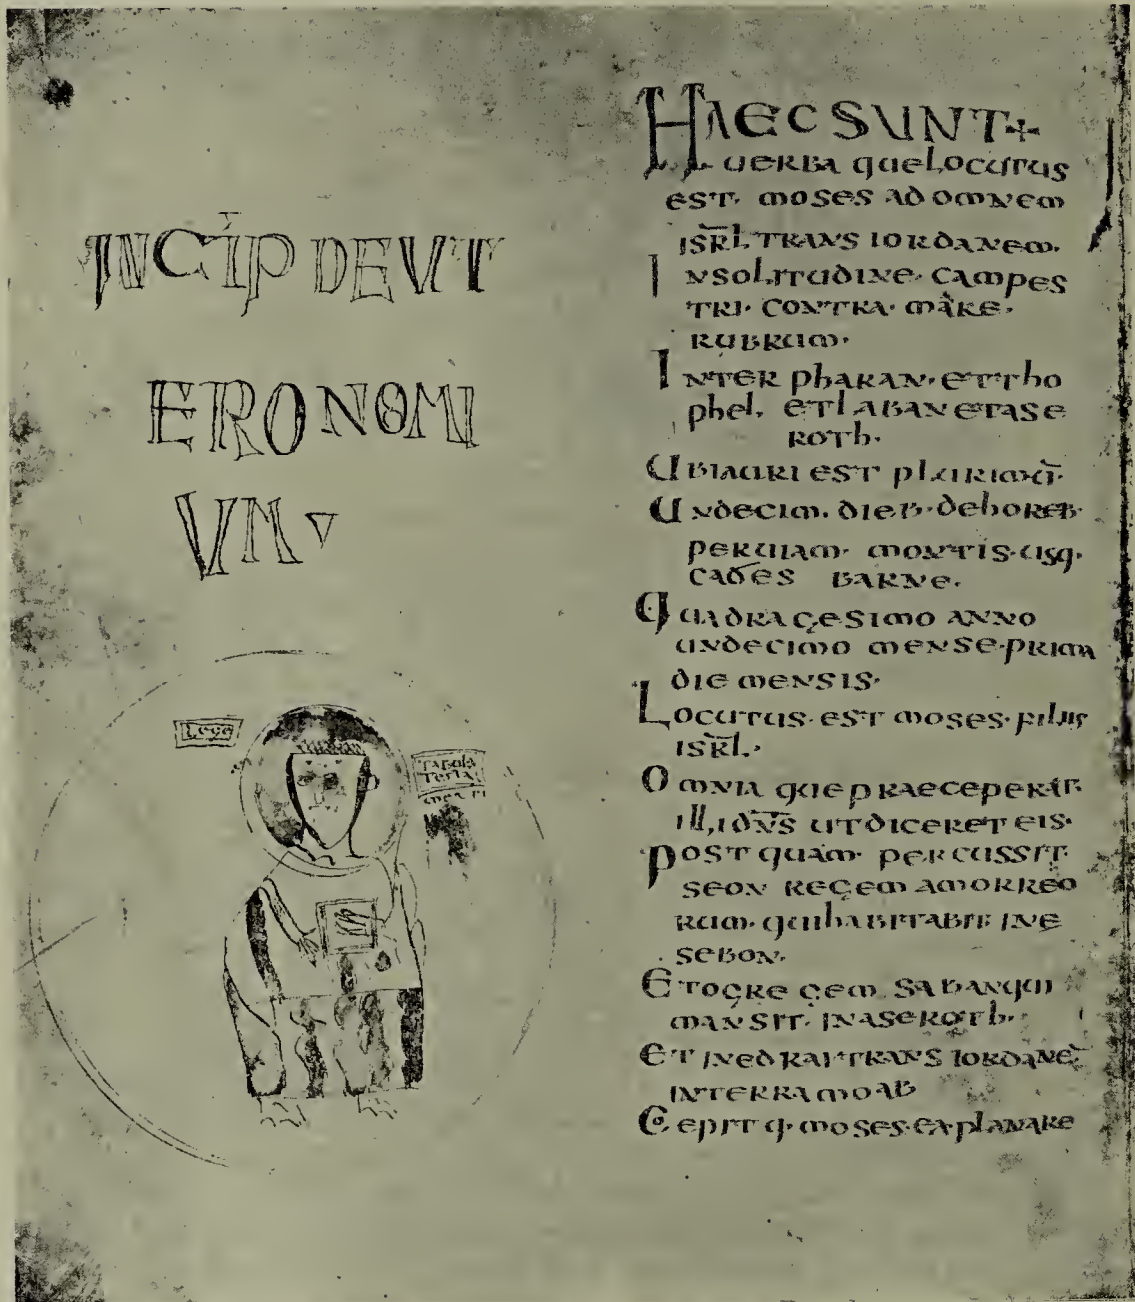 INCIP DEUT
ERONOMI
UM
Lege
HAEC SUNT
UERBA que LOCUTUS
EST· MOSES AD OMNEM
ISRL̄ TRANS IORDANEM·
IN SOLITUDINE· CAMPES
TRI· CONTRA· MARE·
RUBRUM·
INTER PHARAN· ET THO
PHEL· ET LABAN ET ASE
ROTH·
UBI AURI EST PLURIMŪ·
UNDECIM· DIEB· DE HOREB·
PER UIAM· MONTIS· USQ·
CADES BARNE·
QUADRAGESIMO ANNO
UNDECIMO MENSE· PRIMA
DIE MENSIS·
LOCUTUS· EST MOSES· FILIIS
ISRL̄·
OMNIA QUE PRAECEPERAT
ILLI DN̄S UT DICERET EIS·
POST QUAM· PERCUSSIT·
SEON REGEM AMORREO
RUM· QUI HABITABIT IN E
SEBON·
ET OG REGEM BASAN QUI
MANSIT· IN ASEROTH·
ET IN EDRAI TRANS IORDANĒ
IN TERRA MOAB
CEPIT Q· MOSES· EXPLANARE